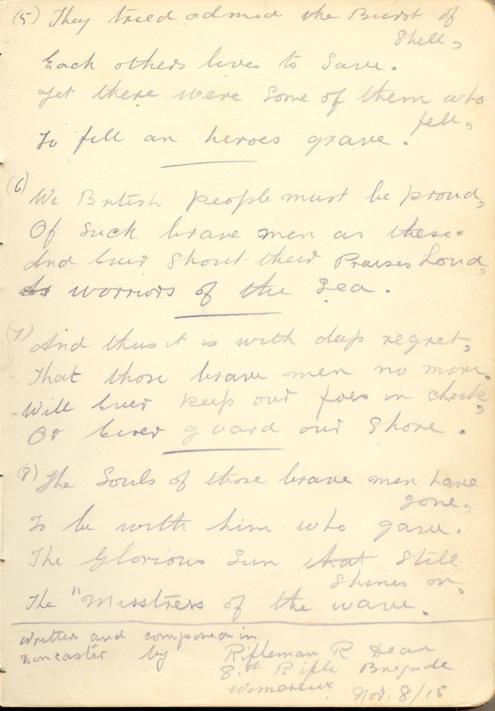 (5) They tried admid the Burst of
Shell,
Each others lives to Save.
Yet there were Some of them who
fell,
To fill an heroes grave.
(6) We British people must be proud,
Of Such brave men as these.
And Ever Shout their Praises Loud,
As worriors of the Sea.
(7) And thus it is with deep regret,
That those brave men no more.
Will Ever keep our foes in check,
Or Ever guard our Shore.
(8) The Souls of those brave men have
gone,
To be with him who gave.
The Glorious Sun that Still
Shines on,
The "Misstress of the wave.
Written and composed in
Doncaster by Rifleman R Dear
8th Rifle Brigade
Wimereux Nov. 8/15